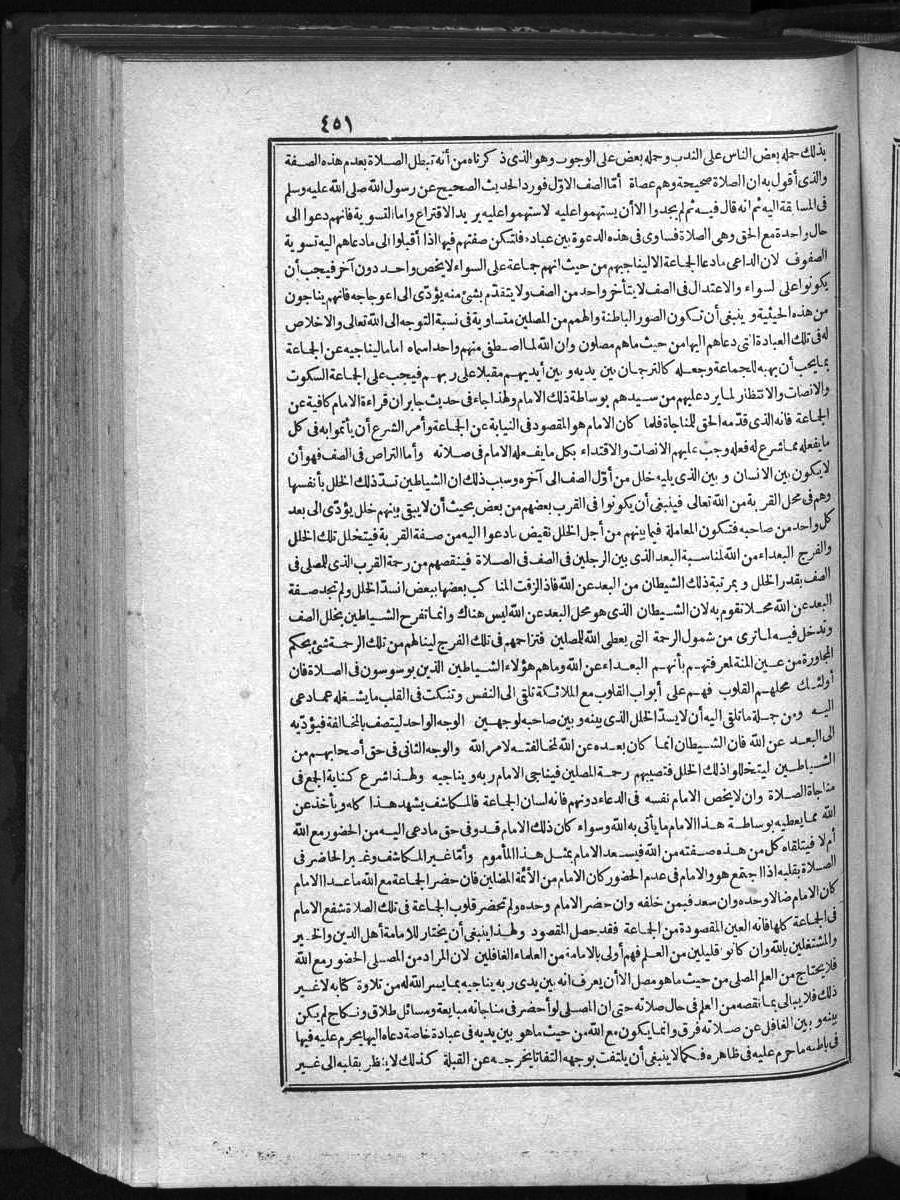 ٤٥١
بذلك حمله بعض الناس على الندب وحمله بعض على الوجوب وهو الذى ذكرناه من أنه تبطل الصلاة بعدم هذه الصفة
والذى أقول به ان الصلاة صحيحة وهم عصاة أمّا الصف الاوّل فورد الحديث الصحيح عن رسول الله صلى الله عليه وسلم
فى المسابقة اليه ثم انه قال فيه ثم لم يجدوا الا أن يستهموا عليه لاستهموا عليه يريد الاقتراع واما التسوية فانهم دعوا الى
حال واحدة مع الحق وهى الصلاة فساوى فى هذه الدعوة بين عباده فلتكن صفتهم فيها اذا أقبلوا الى ما دعاهم اليه تسوية
الصفوف لان الداعى ما دعا الجماعة الا ليناجيهم من حيث انهم جماعة على السواء لا يخص واحد دون آخر فيجب أن
يكونوا على السواء والاعتدال فى الصف لا يتأخر واحد من الصف ولا يتقدّم بشئ منه يؤدّى الى اعوجاجه فانهم يناجون
من هذه الحيثية وينبغى أن تكون الصور الباطنة والهمم من المصلين متساوية فى نسبة التوجه الى الله تعالى والاخلاص
له فى تلك العبادة التى دعاهم اليها من حيث ماهم مصلون وان الله لما اصطفى منهم واحدا سماه اماما ليناجيه عن الجماعة
بما يحب أن يهبه للجماعة وجعله كالترجمان بين يديه وبين أيديهم مقبلا على ربهم فيجب على الجماعة السكوت
والانصات والانتظار لما يرد عليهم من سيدهم بوساطة ذلك الامام ولهذا جاء فى حديث جابر ان قراءة الامام كافية عن
الجماعة فانه الذى قدّمه الحق للمناجاة فلما كان الامام هو المقصود فى النيابة عن الجماعة وأمر الشرع أن يأتموا به فى كل
ما يفعله مما شرع له فعله وجب عليهم الانصات والاقتداء بكل ما يفعله الامام فى صلاته وأما التراص فى الصف فهو أن
لا يكون بين الانسان وبين الذى يليه خلل من أوّل الصف الى آخره وسبب ذلك ان الشياطين تسدّ ذلك الخلل بأنفسها
وهم فى محل القربة من الله تعالى فينبغى أن يكونوا فى القرب بعضهم من بعض بحيث أن لا يبقى بينهم خلل يؤدّى الى بعد
كل واحد من صاحبه فتكون المعاملة فيما بينهم من أجل الخلل نقيض ما دعوا اليه من صفة القربة فيتخلل تلك الخلل
والفرج البعداء من الله لمناسبة البعد الذى بين الرجلين فى الصف فى الصلاة فينقصهم من رحمة القرب الذى للمصلى فى
الصف بقدر الخلل وبمرتبة ذلك الشيطان من البعد عن الله فاذا لزقت المناكب بعضها ببعض انسدّ الخلل ولم تجد صفة
البعد عن الله محلا تقوم به لان الشيطان الذى هو محل البعد عن الله ليس هناك وانما تفرح الشياطين بخلل الصف
وتدخل فيه لما ترى من شمول الرحمة التى يعطى الله للمصلين فتزاحمهم فى تلك الفرج لينالهم من تلك الرحمة شئ بحكم
المجاورة من عين المنة لمعرفتهم بأنهم البعداء عن الله وماهم هؤلاء الشياطين الذين يوسوسون فى الصلاة فان
أولئك محلهم القلوب فهم على أبواب القلوب مع الملائكة تلقى الى النفس وتنكت فى القلب ما يشغله عما دعى
اليه ومن جملة ما تلقى اليه أن لا يسدّ الخلل الذى بينه وبين صاحبه لوجهين الوجه الواحد ليتصف بالمخالفة فيؤدّيه
الى البعد عن الله فان الشيطان انما كان بعده عن الله لمخالفته لامر الله والوجه الثانى فى حق أصحابهم من
الشياطين ليتخللوا ذلك الخلل فتصيبهم رحمة المصلين فيناجى الامام ربه ويناجيه ولهذا شرع كناية الجمع فى
مناجاة الصلاة وان لا يخص الامام نفسه فى الدعاء دونهم فانه لسان الجماعة فالمكاشف يشهد هذا كله ويأخذ عن
الله مما يعطيه بوساطة هذا الامام ما يأتى به الله وسواء كان ذلك الامام قد وفى حق ما دعى اليه من الحضور مع الله
أم لا فيتلقاه كل من هذه صفته من الله فيسعد الامام بمثل هذا المأموم وأمّا غير المكاشف وغير الحاضر فى
الصلاة بقلبه اذا اجتمع هو والامام فى عدم الحضور كان الامام من الأئمة المضلين فان حضر الجماعة مع الله ما عدا الامام
كان الامام ضالا وحده وان سعد فبمن خلفه وان حضر الامام وحده ولم تحضر قلوب الجماعة فى تلك الصلاة شفع الامام
فى الجماعة كلها فانه العين المقصودة من الجماعة فقد حصل المقصود ولهذا ينبغى أن يختار للامامة أهل الدين والخير
والمشتغلين بالله وان كانوا قليلين من العلم فهم أولى بالامامة من العلماء الغافلين لان المراد من المصلى الحضور مع الله
فلا يحتاج من العلم المصلى من حيث ما هو مصل الا أن يعرف انه بين يدى ربه يناجيه بما يسر الله له من تلاوة كتابه لا غير
ذلك فلا يبالى بما نقصه من العلم فى حال صلاته حتى ان المصلى لو أحضر فى مناجاته مبايعة ومسائل طلاق ونكاح لم يكن
بينه وبين الغافل عن صلاته فرق وانما يكون مع الله من حيث ما هو بين يديه فى عبادة خاصة دعاه اليها يحرم عليه فيها
فى باطنه ما حرم عليه فى ظاهره فكما لا ينبغى أن يلتفت بوجهه التفاتا يخرجه عن القبلة كذلك لا ينظر بقلبه الى غير